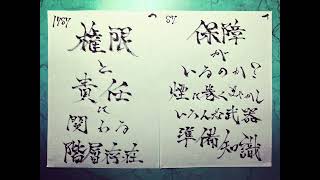 1757
権限
と
責任
に
関わる
階層存在
57
保障
が
いるのか?
煙に巻く
いろんな武器
準備し知識